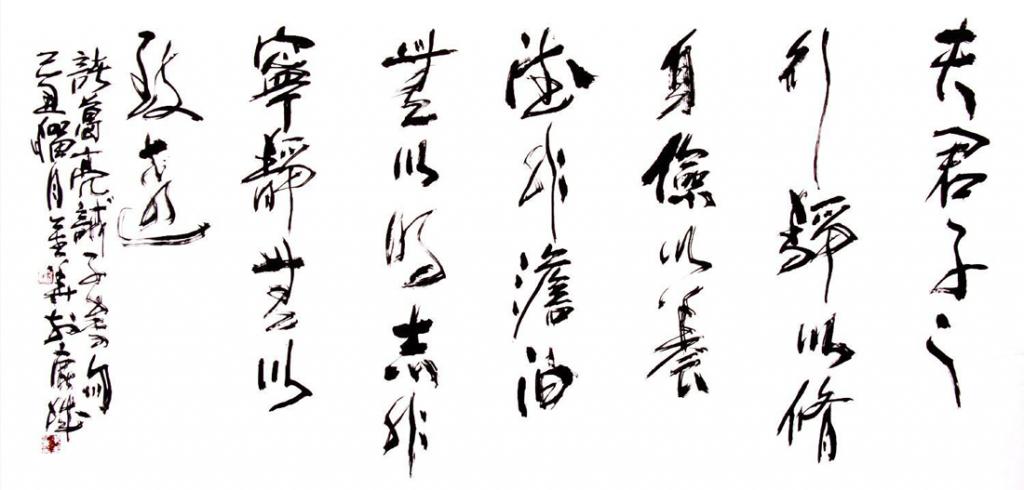 夫君子之
行靜以脩
身儉以養
德非澹泊
無以明志非
寧靜無以
致遠
諸葛亮誡子書句
己丑榴月